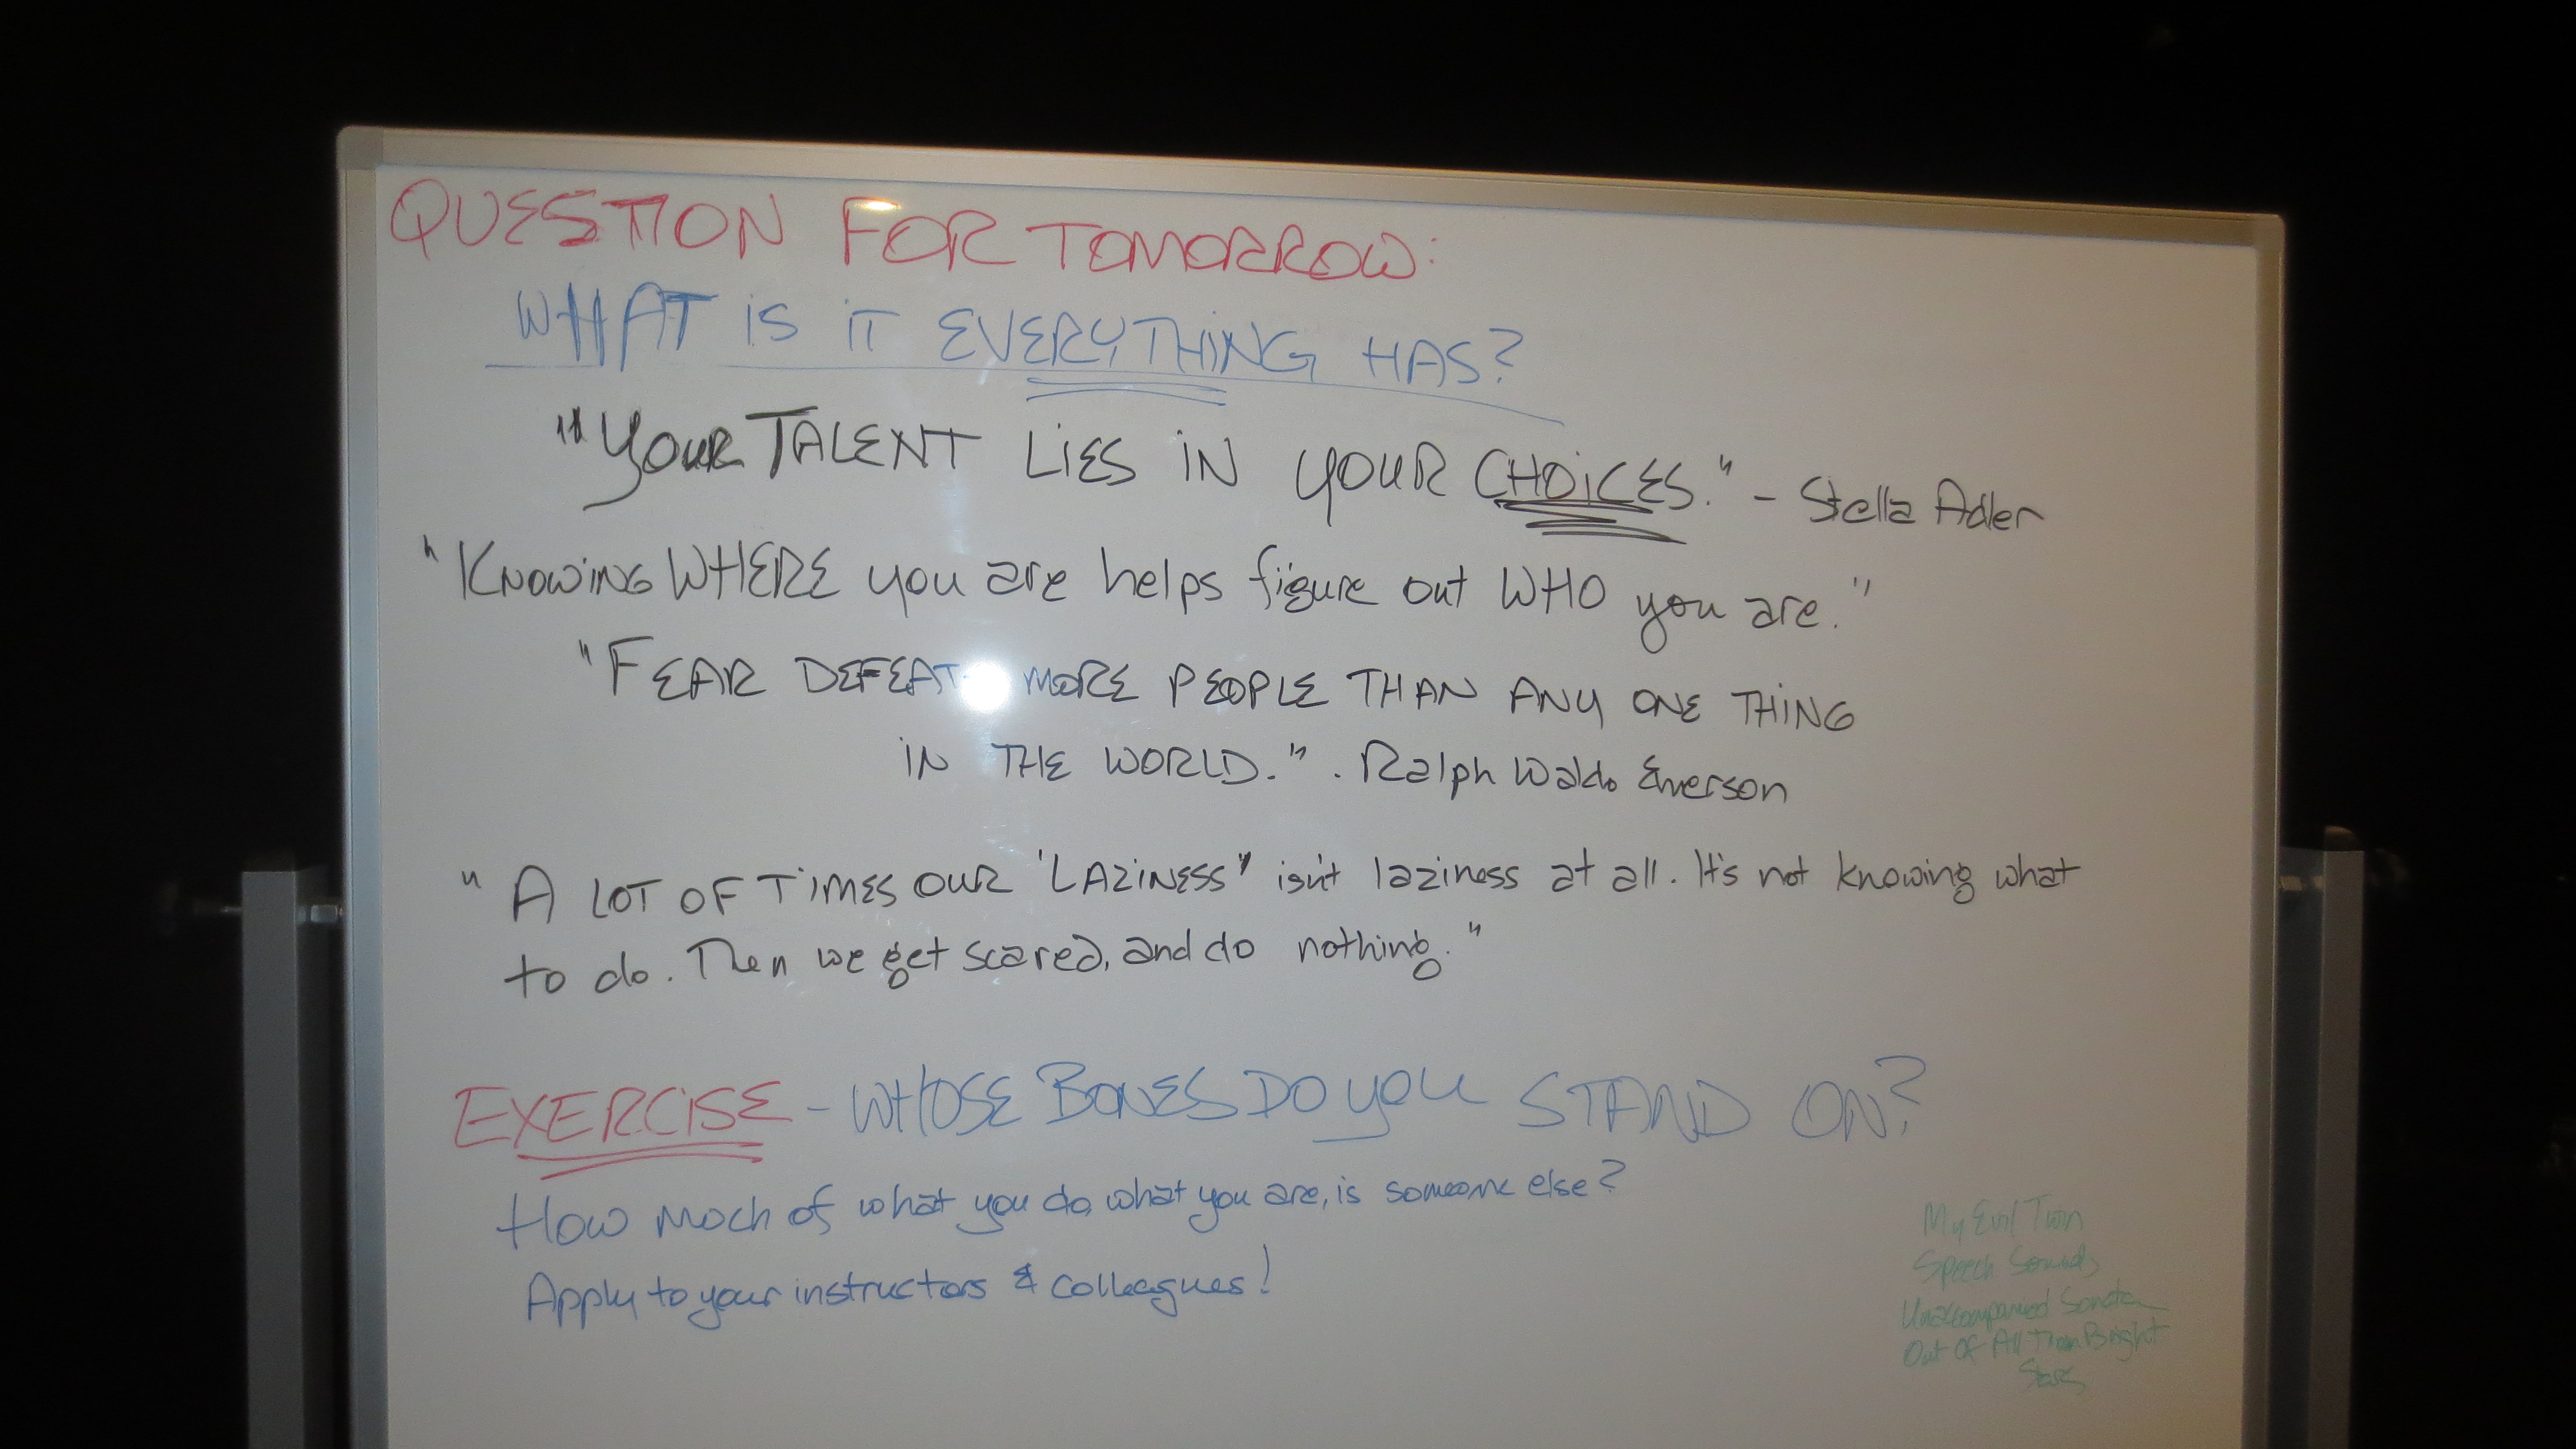 QUESTION FOR TOMORROW:
WHAT IS IT EVERYTHING HAS?
"YOUR TALENT LIES IN YOUR CHOICES." - Stella Adler
"KNOWING WHERE you are helps figure out WHO you are."
"FEAR DEFEATS MORE PEOPLE THAN ANY ONE THING
IN THE WORLD." - Ralph Waldo Emerson
"A LOT OF TIMES OUR 'LAZINESS" isn't laziness at all. It's not knowing what
to do. Then we get scared, and do nothing."
EXERCISE - WHOSE BONES DO YOU STAND ON?
How much of what you do, what you are, is someone else?
Apply to your instructors & colleagues!
My Evil Twin
Speech Sounds
Unaccompanied Sonata
Out Of All Them Bright
Stars